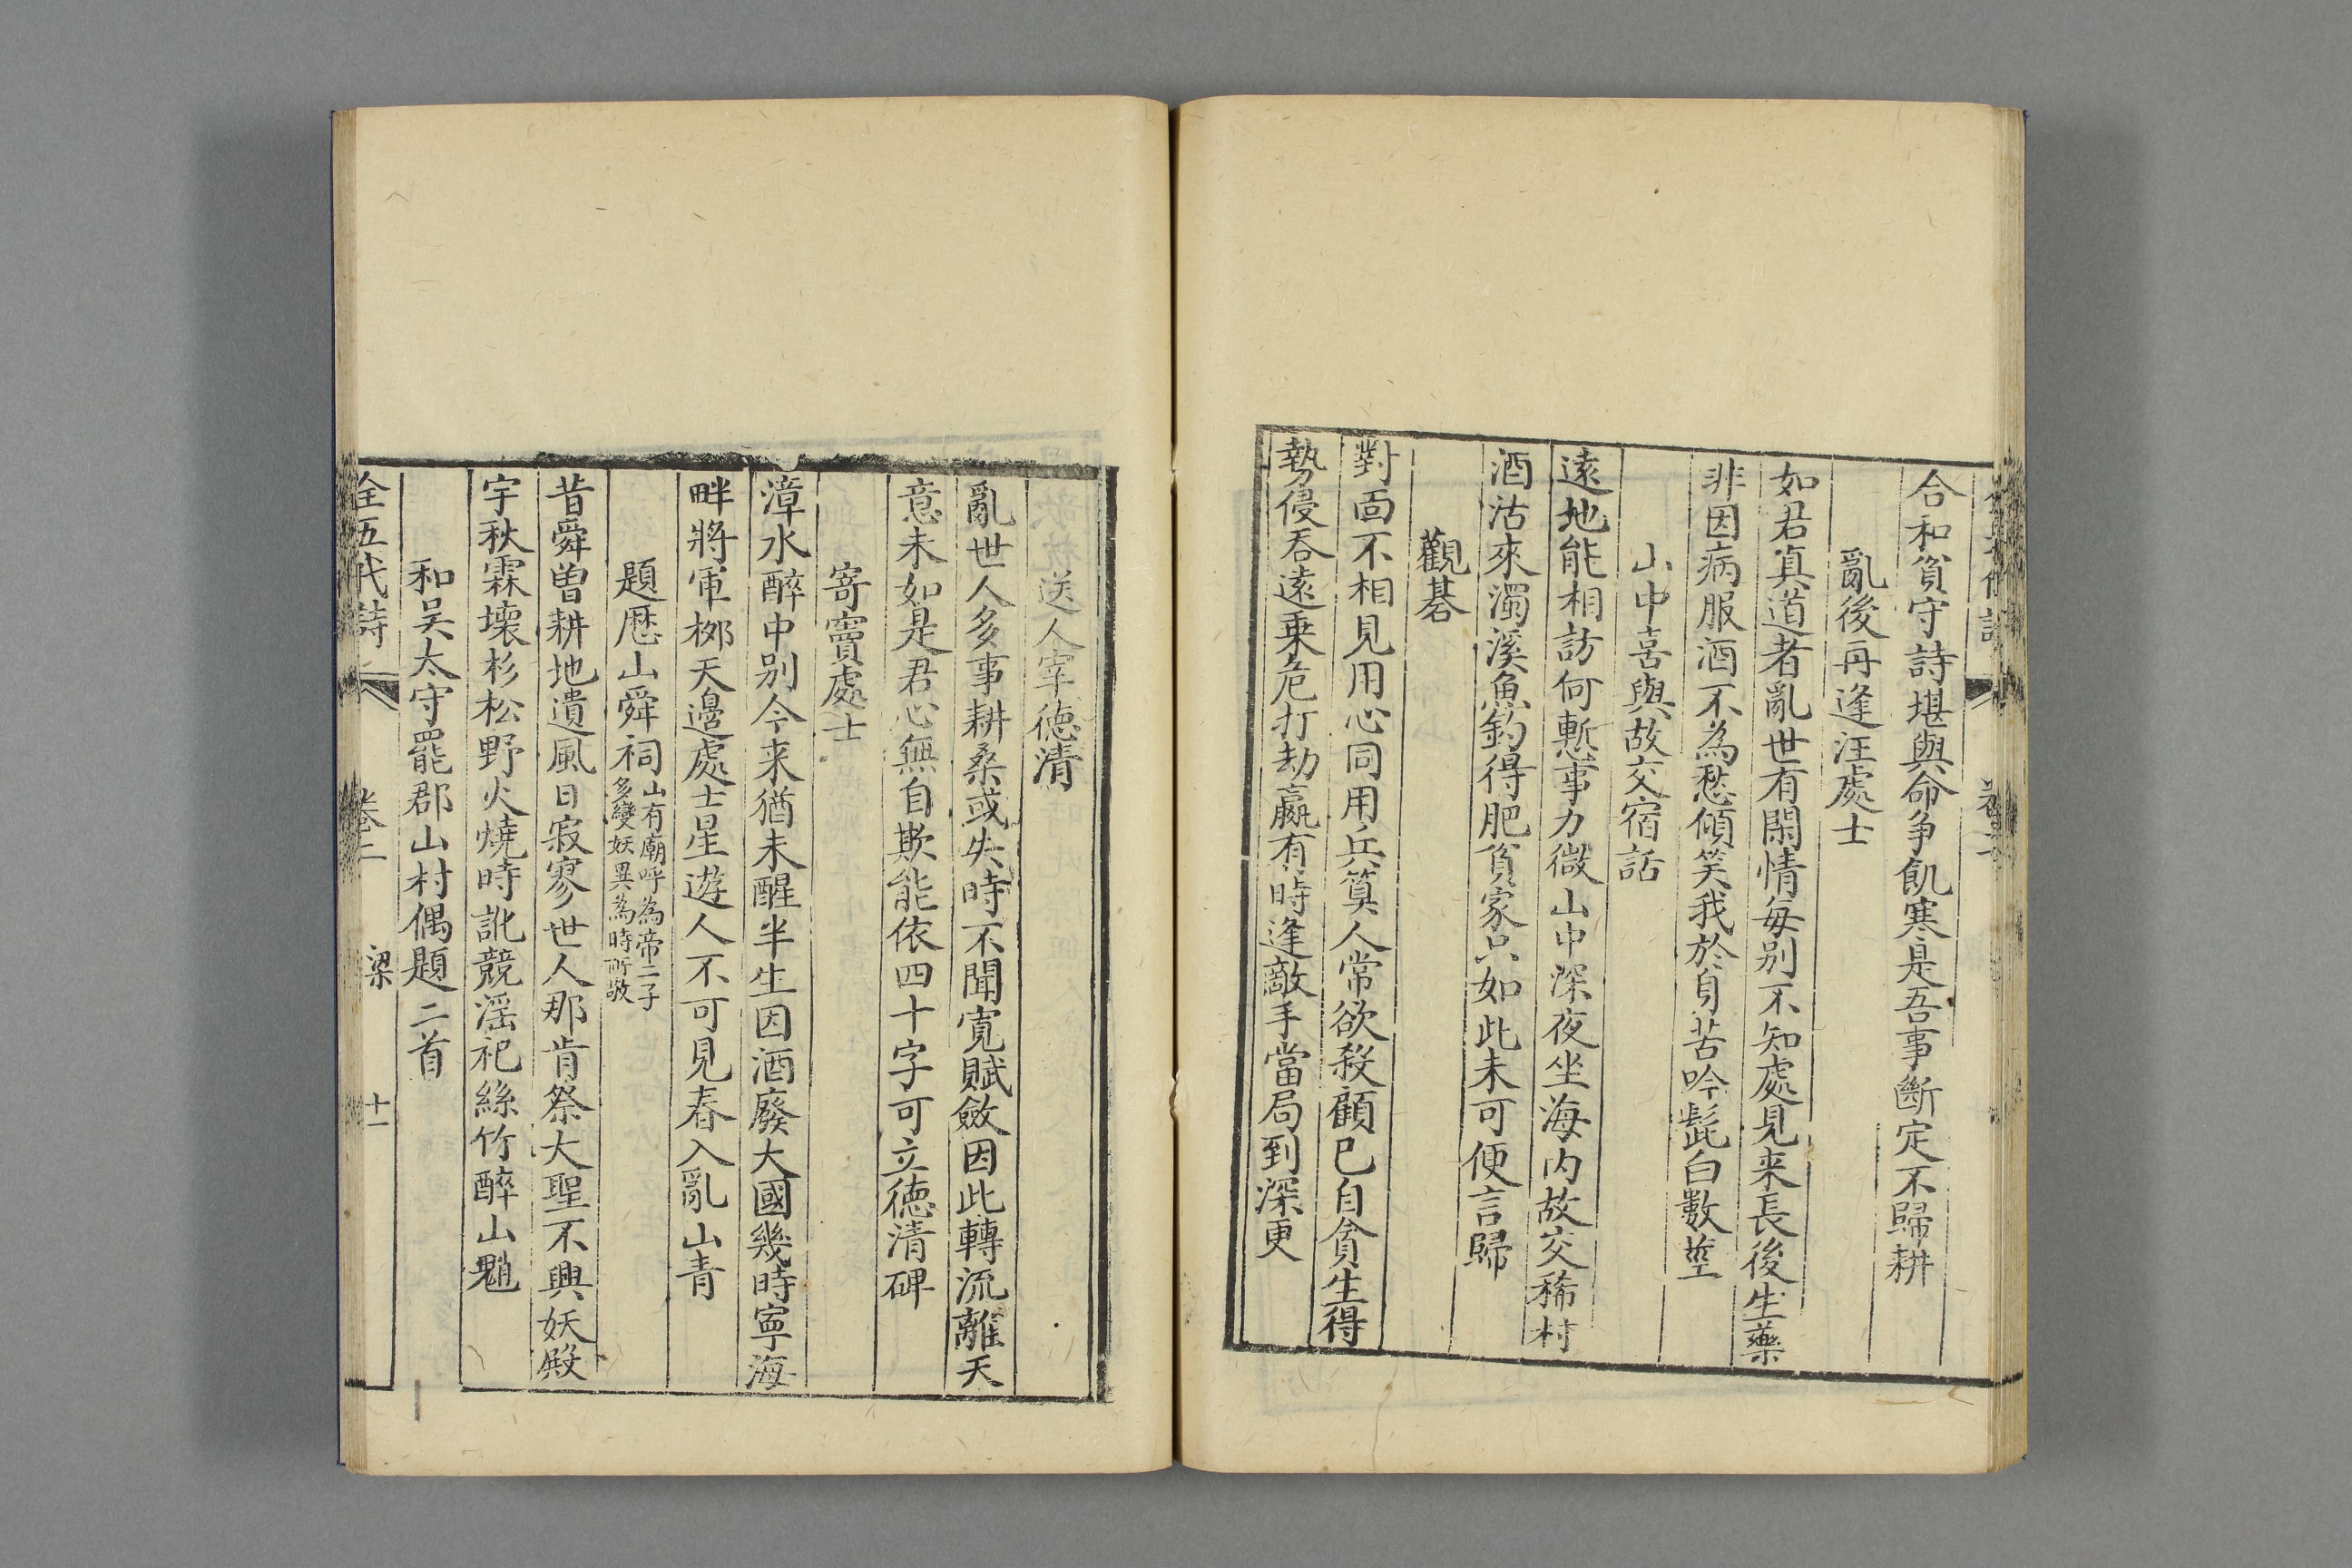 合和貧守詩堪與命争飢寒是吾事斷定不歸耕
亂後再逢汪處士
如君真道者亂世有閑情每别不知處見来長後生藥
非因病服酒不為愁傾笑我於身苦吟髭白數莖
山中喜與故交宿話
遠地能相訪何慙事力微山中深夜坐海内故交稀村
酒沽來濁溪魚釣得肥貧家只如此未可便言歸
觀碁
對面不相見用心同用兵筭人常欲殺顧已自貪生得
勢侵吞遠乗危打劫贏有時逢敵手當局到深更
送人宰徳清
亂世人多事耕桑或失時不聞寛賦斂因此轉流離天
意未如是君心無自欺能依四十字可立徳清碑
寄竇處士
漳水醉中别今来猶未醒半生因酒廢大國幾時寧海
畔將軍栁天邉處士星遊人不可見春入亂山青
題歴山舜祠山有廟呼為帝二子多變妖異為時所敬
昔舜曽耕地遺風日寂寥世人那肯祭大聖不興妖殿
宇秋霖壊杉松野火燒時訛競滛祀絲竹醉山魈
和吴太守罷郡山村偶題二首
全五代詩 卷二 梁 十一